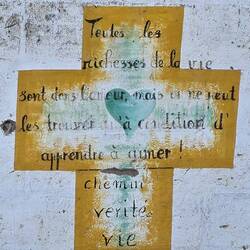 Toutes les
richesses de la vie
sont dans l'amour, mais on ne peut
les trouver qu'à condition d'
apprendre à aimer !
chemin
verité
vie